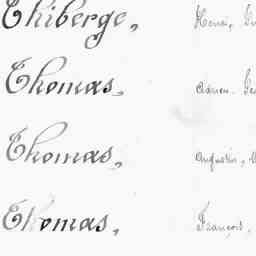 Thiberge, Henri,
Thomas, Adrien
Thomas, Augustin,
Thomas, François,